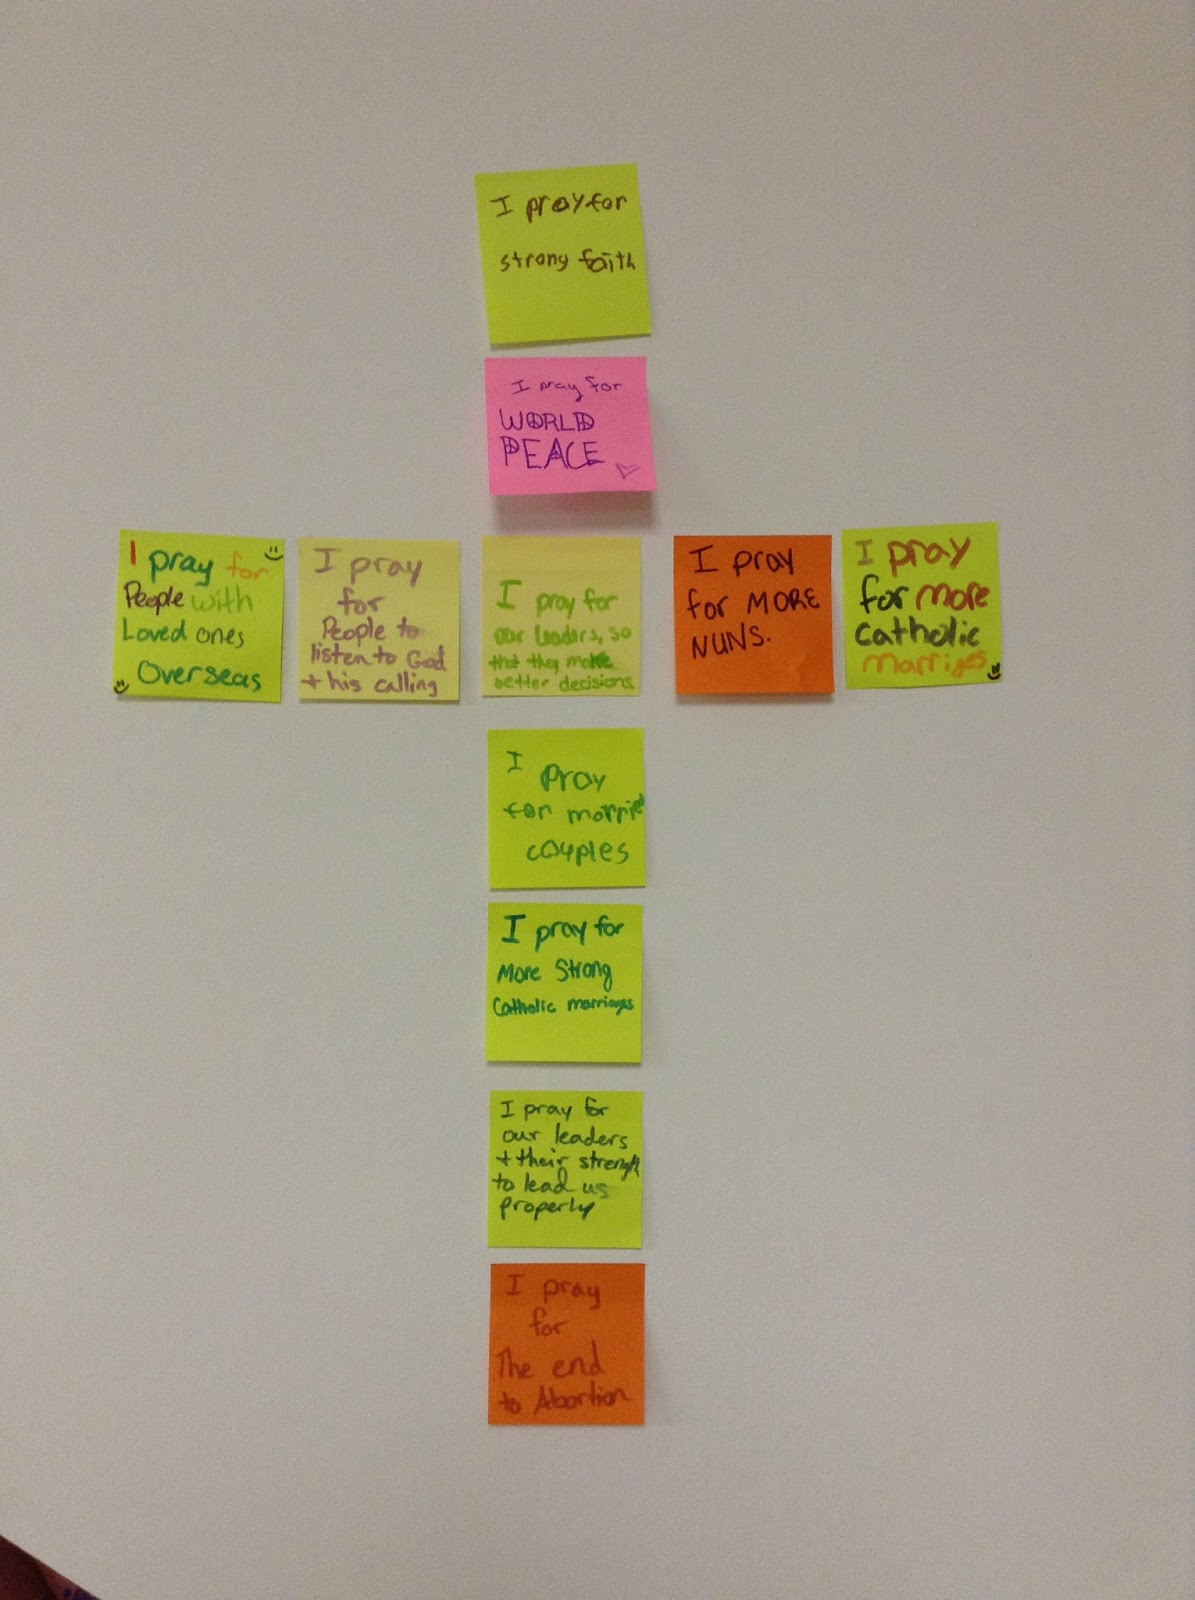 I pray for
strong faith
I pray for
WORLD
PEACE
I pray for
People with
Loved ones
Overseas
I pray
for
People to
listen to God
+ his calling
I pray for
our leaders, so
that they make
better decisions
I pray
for MORE
NUNS.
I pray
for more
catholic
marriges
I
pray
for married
couples
I pray for
More Strong
Catholic marriages
I pray for
our leaders
+ their strength
to lead us
properly
I pray
for
The end
to Abortion